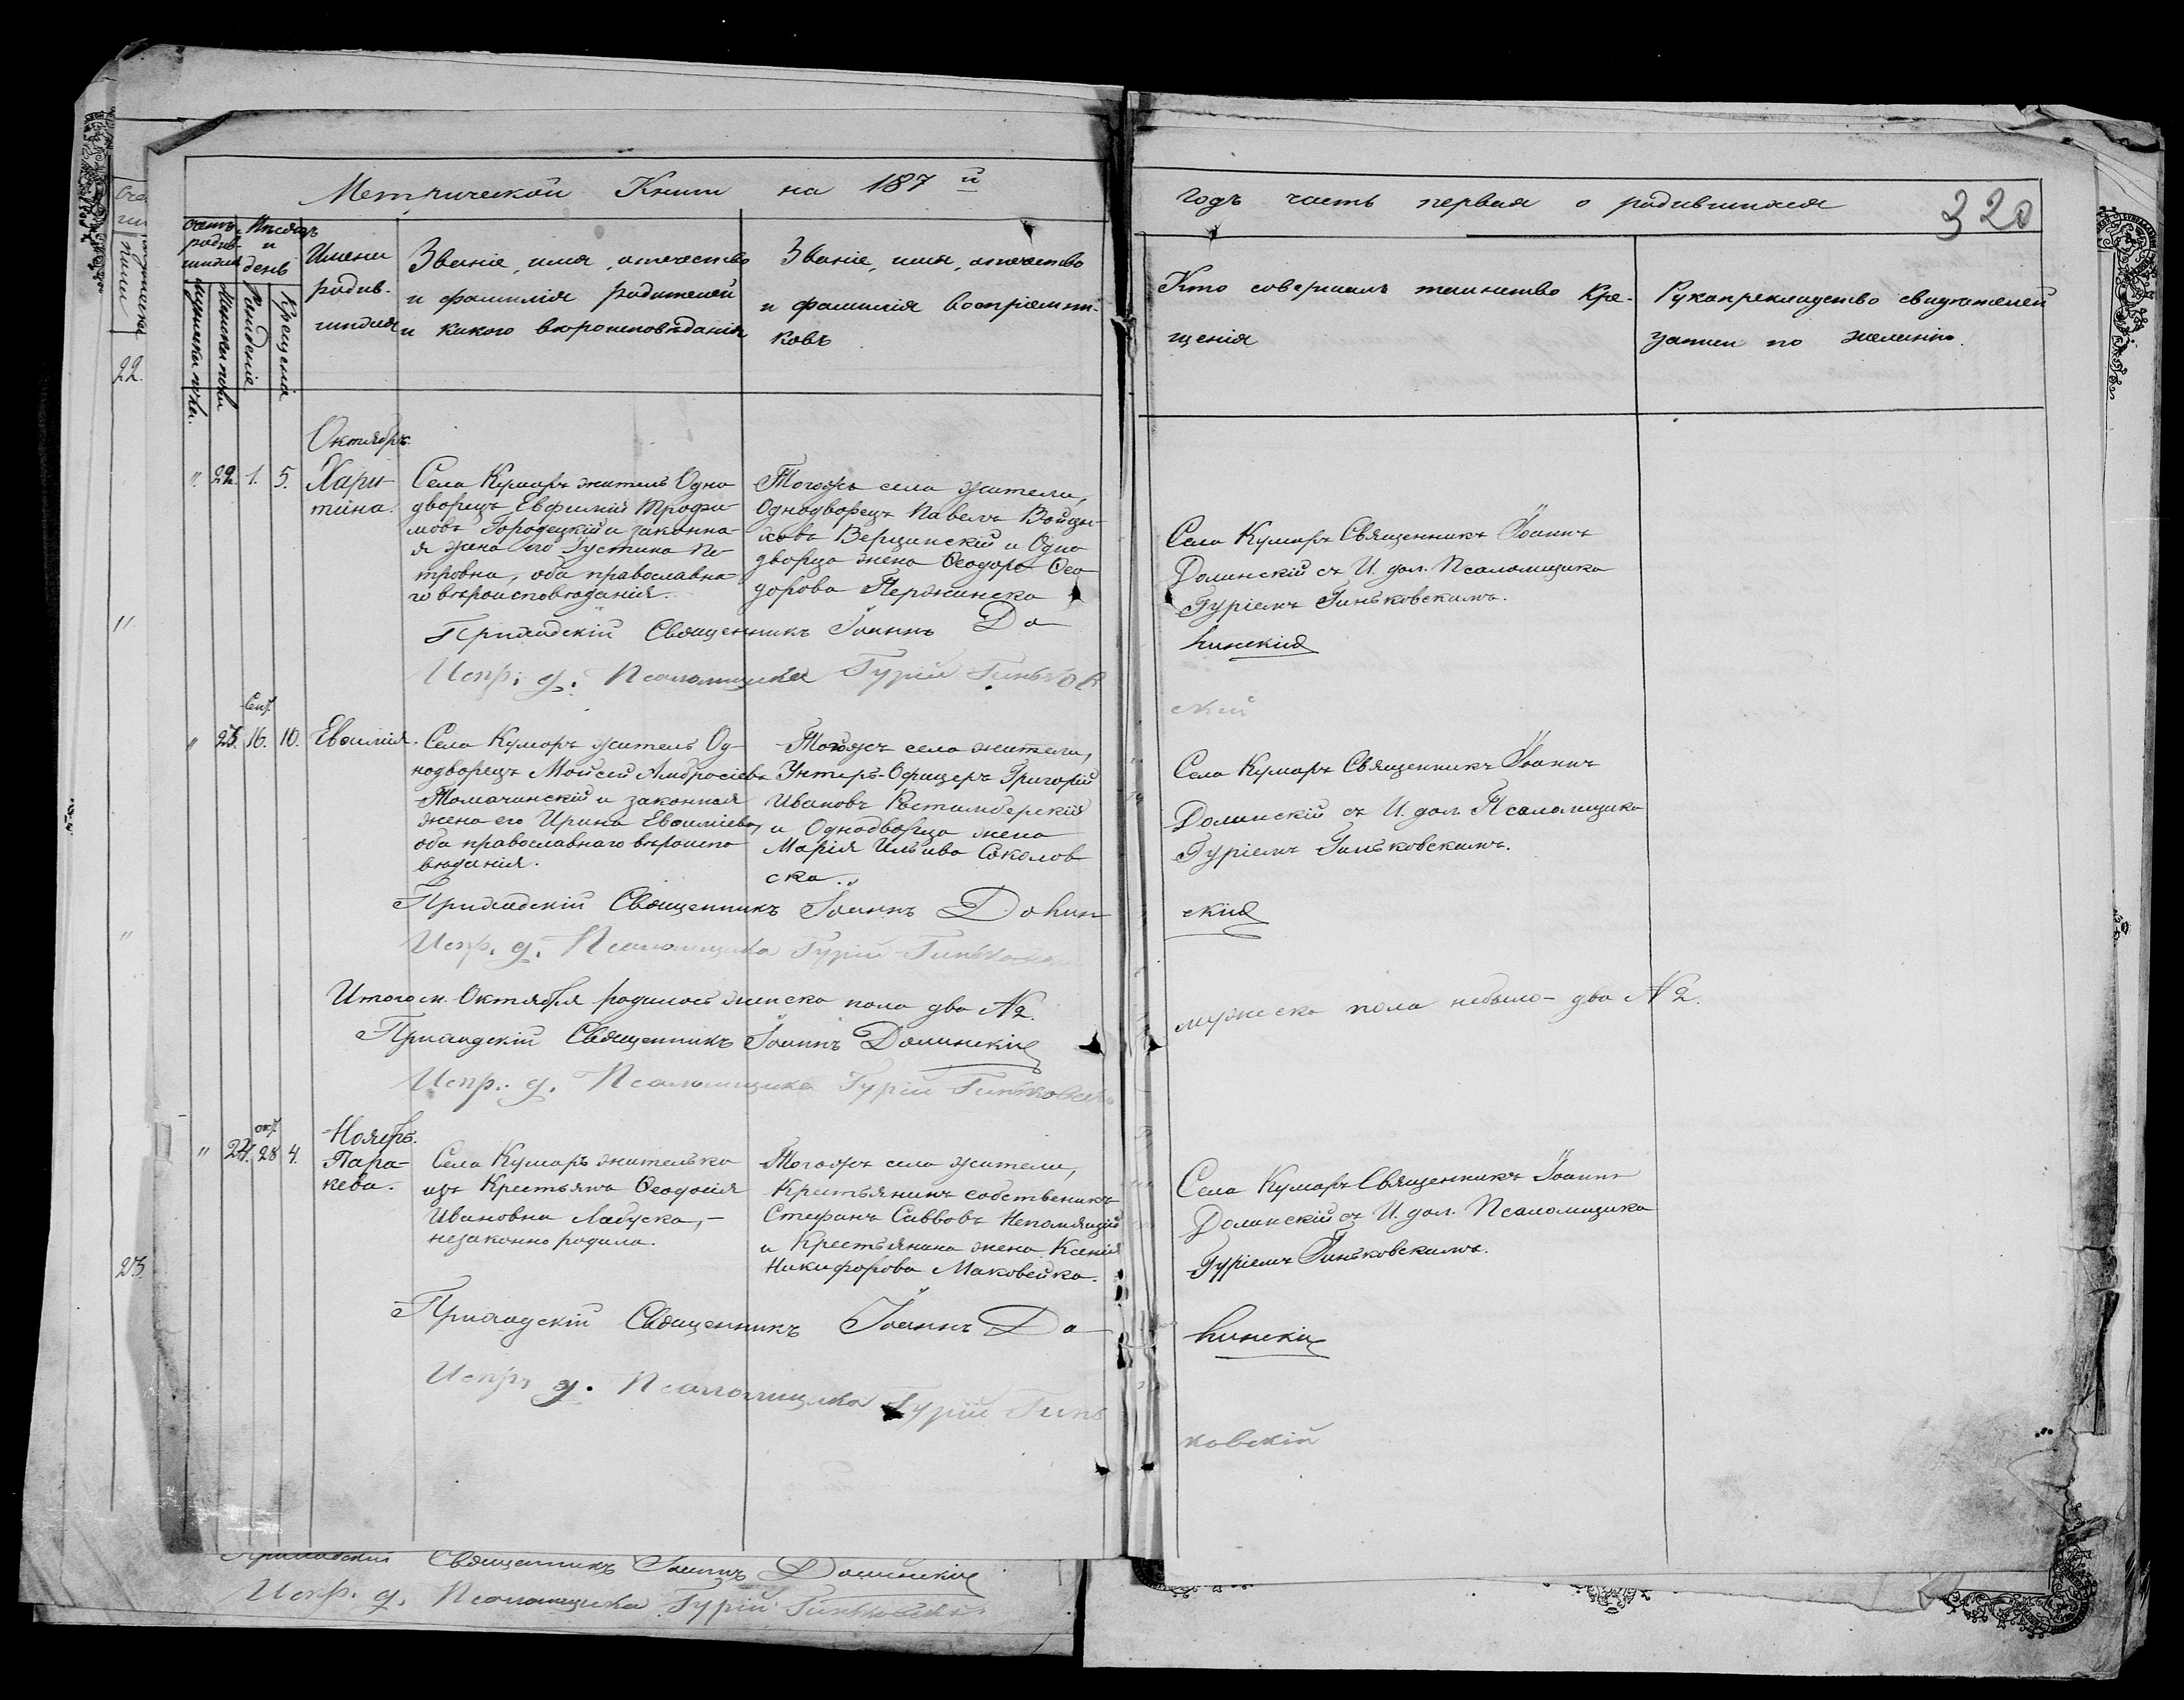 Метрической Книги на 187 й
годъ часть первая о родившихся
320
Счетъ родив-шихся
Мѣсяцъ и день
Мужеска пола.
Женска пола
Рожденіе.
Крещенія
Имена
родив-
шихся
Званіе, имя, отчество
и фамилія родителей
и какого вѣроисповѣданія
Званіе, имя, отчество
и фамилія воспріемни-
ковъ
Кто совершалъ таинство кре-
щенія
Рукоприкладство свидѣтелей
записи по желанію.
22.
Октябрь.
" 22. 1. 5.
Хари-
тина.
Села Кумаръ житель Одно
дворецъ Евфимій Трофи-
мовъ Городецкій и законна-
я жена его Іустина Пе-
тровна, оба православна-
го вѣроисповѣданія.
Тогожъ села жители,
Однодворецъ Павелъ Войцы-
ховъ Верщинскій и Одно
дворца жена Ѳеодора Ѳео
дорова Пержинска
Села Кумаръ Священникъ Іоаннъ
Долинскій съ И. дол. Псаломщика
Гуріемъ Гиньковскимъ.
Приходскій Священникъ Іоаннъ До
линскій
Испр. д. Псаломщика Гурій Гиньков
скій
Сен.
" 23. 16. 10.
Евѳимія.
Села Кумаръ житель Од-
нодворецъ Мойсей Амвросіевъ
Томачинскій и законная
жена его Ирина Евѳиміева,
оба православнаго вѣроиспо
вѣданія.
Тогожъ села жители,
Унтеръ-Офицеръ Григорій
Ивановъ
и Однодворца жена
Марія Ильива Соколов
ска..
Села Кумаръ Священникъ Іоаннъ
Долинскій съ И. дол. Псаломщика
Гуріемъ Гиньковскимъ.
Приходскій Священникъ Іоаннъ Долин
скій
Испр. д. Псаломщика Гурій
Итого м. Октября родилось женска пола два № 2.
мужеска пола небыло - два № 2.
Приходскій Священникъ Іоаннъ Долинскій
Испр. д. Псаломщика Гурій Гиньковскій
Ноябрь.
окт.
" 24. 28 4.
Пара-
кева.
Села Кумаръ жителька
изъ Крестьянъ Ѳеодосія
Ивановна Лабуска, -
незаконно родила.
Тогожъ села жители,
Крестьянинъ собственикъ
Стефанъ Саввовъ Непомящій
и Крестьянина жена Ксенія
Никифорова Маковейка.
Села Кумаръ Священникъ Іоаннъ
Долинскій съ И. дол. Псаломщика
Гуріемъ Гиньковскимъ.
Приходскій Священникъ Іоаннъ До
линскій
Испр. д. Псаломщика Гурій Гинь
ковскій
23.
Приходскій Священникъ Іоаннъ Долинскій
Испр. д. Псаломщика Гурій Гиньковскій